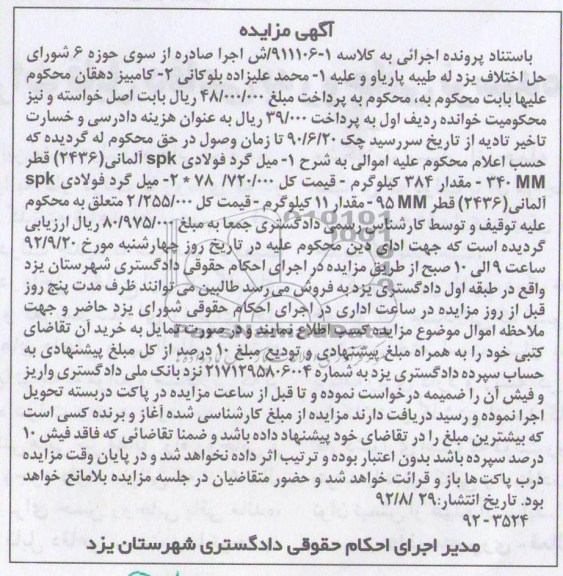 آگهی مزایده
باستناد پرونده اجرائی به کلاسه ۱-۹۱۱۱۰۶/ش اجرا صادره از سوی حوزه ۶ شورای
حل اختلاف یزد له طیبه پاریاو وعلیه ۱- محمد علیزاده بلوکانی ۲- کامبیز دهقان محکوم
علیها بابت محکوم به، محکوم به پرداخت مبلغ ۴۸/۰۰۰/۰۰۰ ریال بابت اصل خواسته و نیز
محکومیت خوانده ردیف اول به پرداخت ۳۹/۰۰۰ ریال به عنوان هزینه دادرسی و خسارت
تاخیر تادیه از تاریخ سررسید چک ۹۰/۶/۲۰ تا زمان وصول در حق محکوم له گردیده که
حسب اعلام محکوم علیه اموالی به شرح ۱- میل گرد فولادی spk آلمانی(۲۴۳۶) قطر
۳۴۰ MM - مقدار ۳۸۴ کیلوگرم - قیمت کل ۷۸/۷۲۰/۰۰۰ * ۲- میل گرد فولادی spk
آلمانی(۲۴۳۶) قطر ۹۵ MM - مقدار ۱۱ کیلوگرم - قیمت کل ۲/۲۵۵/۰۰۰ متعلق به محکوم
علیه توقیف و توسط کارشناس رسمی دادگستری جمعا به مبلغ ۸۰/۹۷۵/۰۰۰ ریال ارزیابی
گردیده است که جهت ادای دین محکوم علیه در تاریخ روز چهارشنبه مورخ ۹۲/۹/۲۰
ساعت ۹ الی ۱۰ صبح از طریق مزایده در اجرای احکام حقوقی دادگستری شهرستان یزد
واقع در طبقه اول دادگستری یزد به فروش می رسد طالبین می توانند ظرف مدت پنج روز
قبل از روز مزایده در ساعت اداری در اجرای احکام حقوقی شورای یزد حاضر و جهت
ملاحظه اموال موضوع مزایده کسب اطلاع نمایند و در صورت تمایل به خرید آن تقاضای
کتبی خود را به همراه مبلغ پیشنهادی و تودیع مبلغ ۱۰ درصد از کل مبلغ پیشنهادی به
حساب سپرده دادگستری یزد به شماره ۲۱۷۱۲۹۵۸۰۶۰۰۴ نزد بانک ملی دادگستری واریز
و فیش آن را ضمیمه درخواست نموده و تا قبل از ساعت مزایده در پاکت دربسته تحویل
اجرا نموده و رسید دریافت دارند مزایده از مبلغ کارشناسی شده آغاز و برنده کسی است
که بیشترین مبلغ را در تقاضای خود پیشنهاد داده باشد و ضمنا تقاضائی که فاقد فیش ۱۰
درصد سپرده باشد بدون اعتبار بوده و ترتیب اثر داده نخواهد شد و در پایان وقت مزایده
درب پاکت‌ها باز و قرائت خواهد شد و حضور متقاضیان در جلسه مزایده بلامانع خواهد
بود. تاریخ انتشار: ۹۲/۸/۲۹
۹۲ - ۳۵۲۴
مدیر اجرای احکام حقوقی دادگستری شهرستان یزد